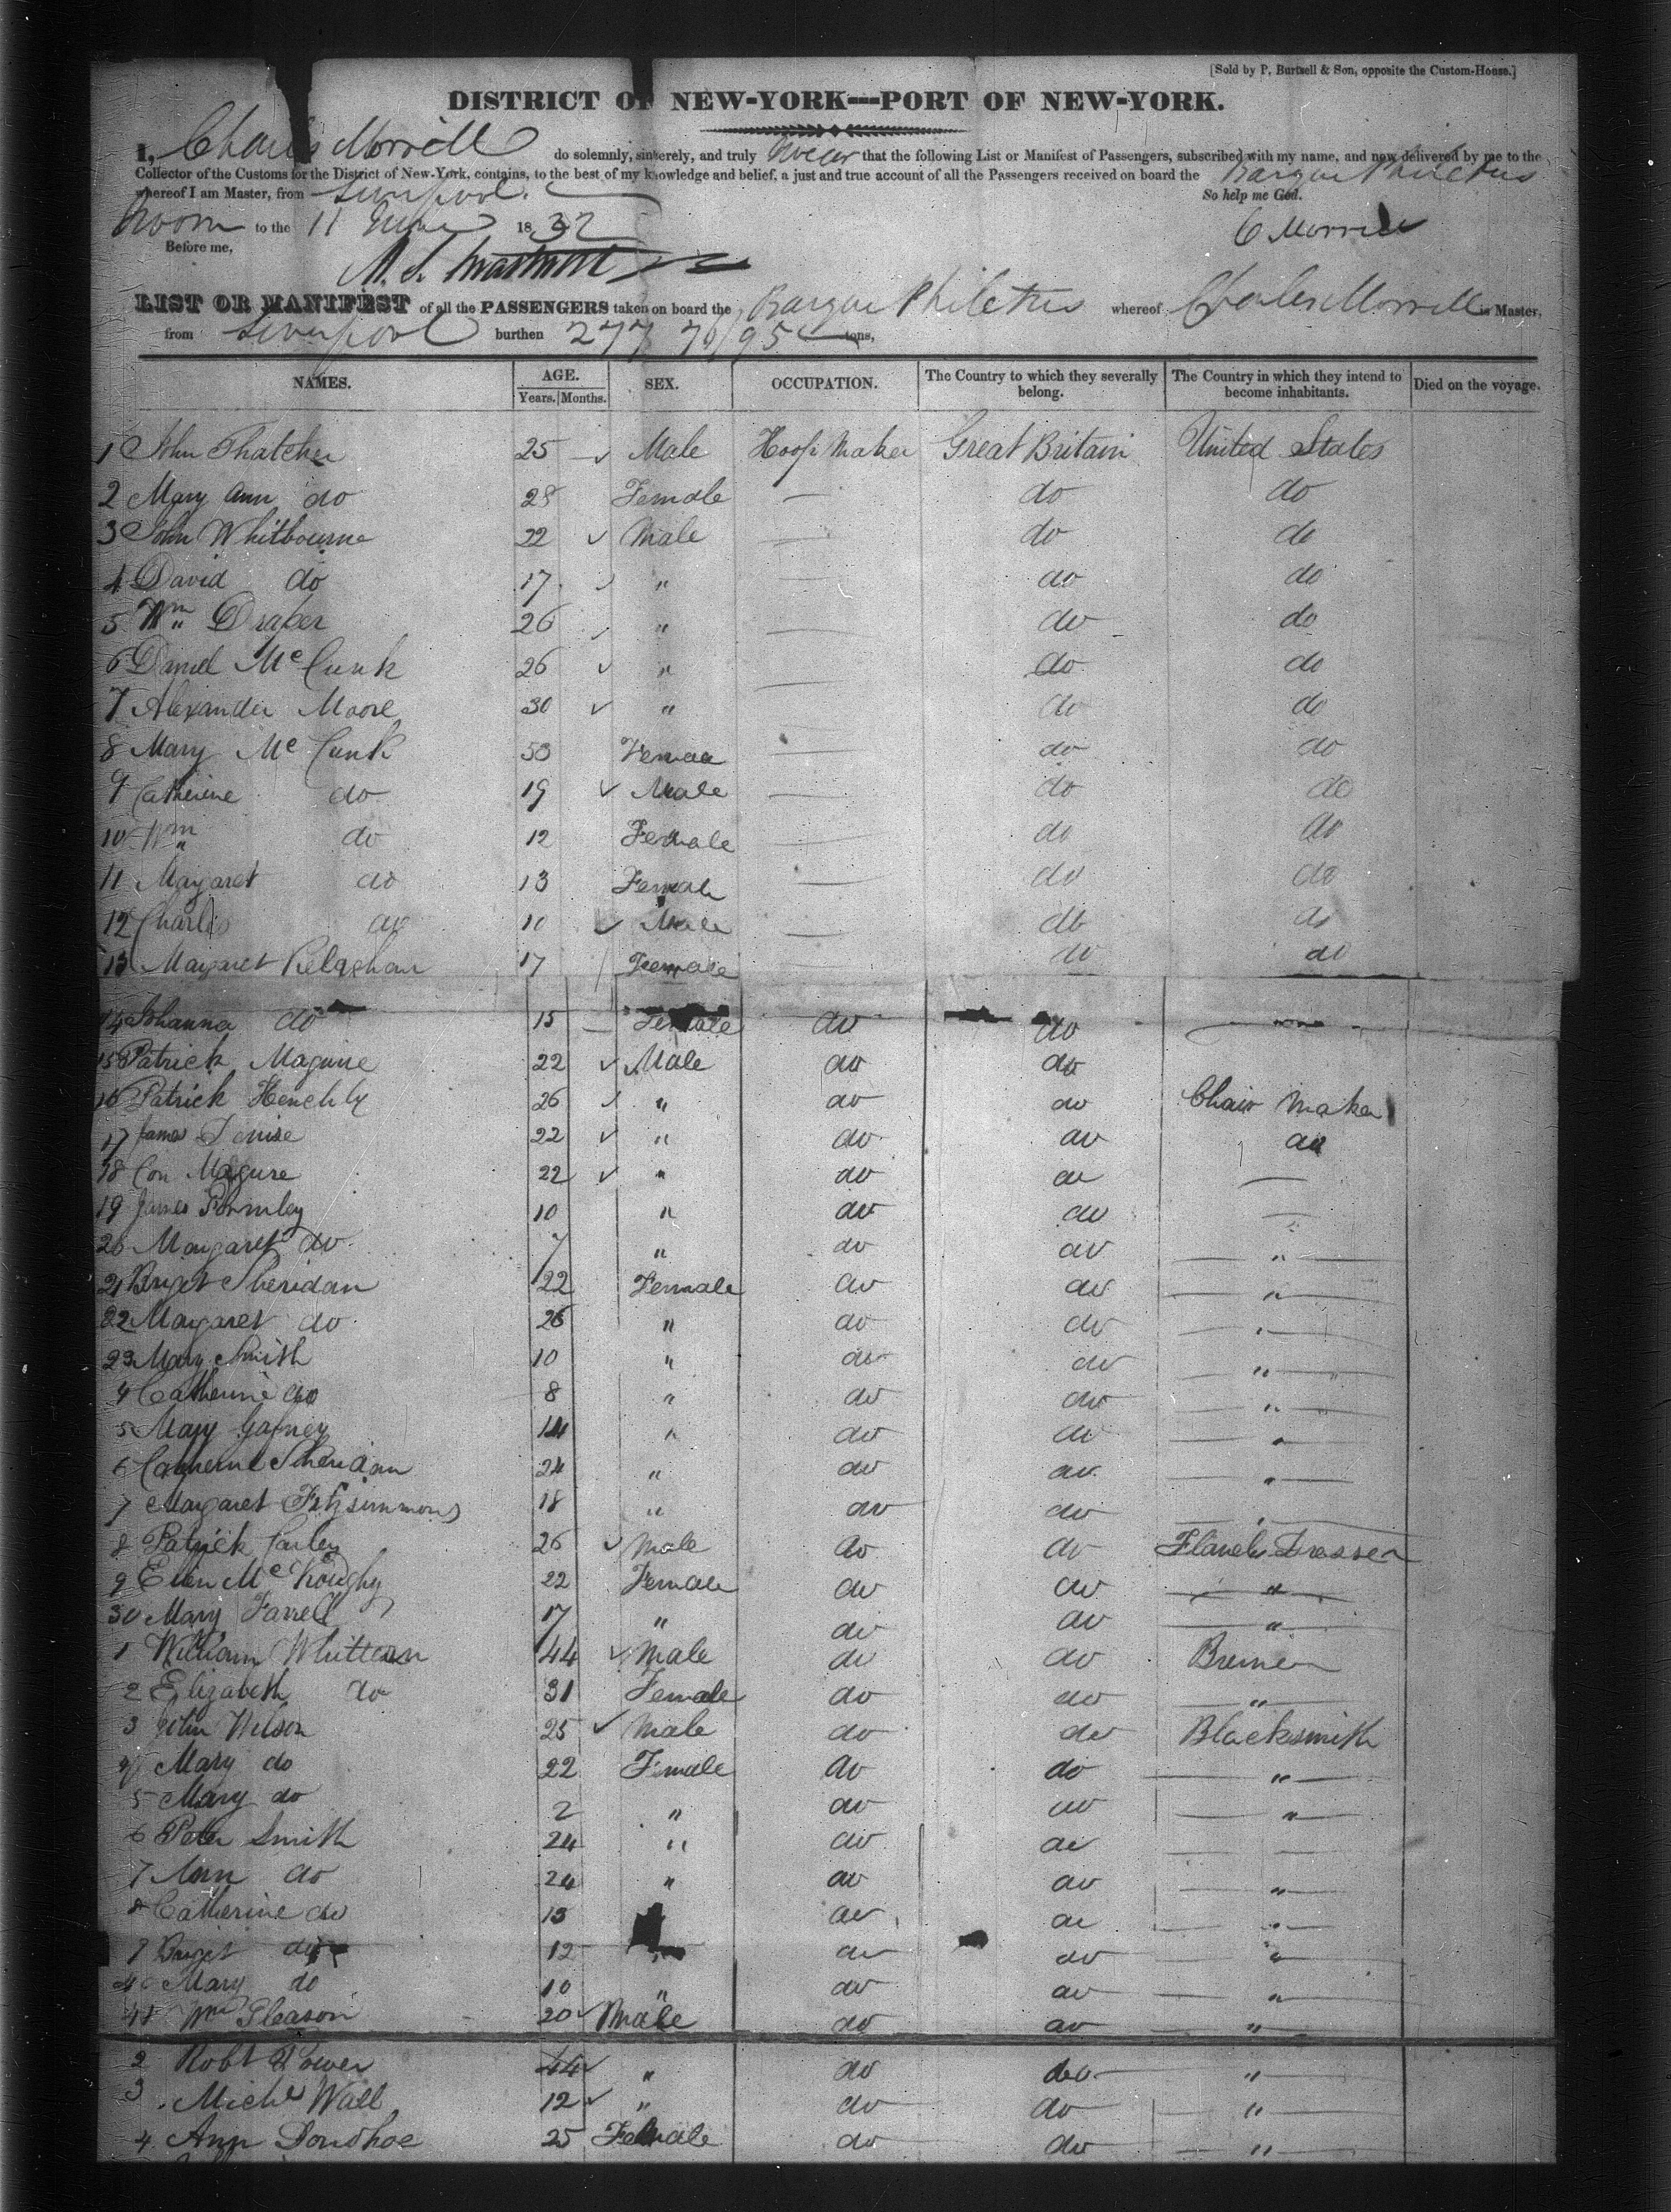 [Sold by P. Burtsell & Son, opposite the Custom-House.]
DISTRICT OF NEW-YORK---PORT OF NEW-YORK.
I, Charles Morrill do solemnly, sincerely, and truly swear that the following List or Manifest of Passengers, subscribed with my name, and now delivered by me to the
Collector of the Customs for the District of New-York, contains, to the best of my knowledge and belief, a just and true account of all the Passengers received on board the Barque Philetus
whereof I am Master, from Liverpool. So help me God.
Sworn to the 11 June 1832 C Morrill
Before me,
LIST OR MANIFEST of all the PASSENGERS taken on board the Barque Philetus whereof Charles Morrill is Master,
from Liverpool burthen 277 70/95 tons,
NAMES. AGE. Years. Months. SEX. OCCUPATION. The Country to which they severally belong. The Country in which they intend to become inhabitants. Died on the voyage.
1 John Thatcher 25 Male Hoop Maker Great Britain United States
2 Mary Ann do 28 Female — do do
3 John Whitbourne 22 Male — do do
4 David do 17 " — do do
5 Wm Draper 26 " — do do
6 Daniel Mc Cunk 26 " — do do
7 Alexander Moore 30 " do do
8 Mary Mc Cunk 53 Female — do do
9 Catherine do 19 Male — do do
10 Wm do 12 Female — do do
11 Margaret do 13 Female — do do
12 Charles do 10 Male — do do
13 Margaret 17 Female do do
14 Johanna do 15 Female do do —
15 Patrick Maguire 22 Male do do
16 Patrick Henchly 26 " do do Chair Maker
17 James 22 " do do do
18 Con Magure 22 " do do —
19 James 10 " do do —
20 Margaret do 7 " do do "
21 Briget Sheridan 22 Female do do "
22 Margaret do 26 " do do "
23 Mary Smith 10 " do do "
4 Catherine do 8 " do do "
5 Mary Gafney 14 " do do "
6 Catherine Sheridan 24 " do do "
7 Margaret Fitzsimmons 18 " do do "
8 Patrick Carley 26 Male do do Dresser
9 Ellen Mc 22 Female do do "
30 Mary Farrell 17 " do do "
1 William Whittern 44 Male do do
2 Elizabeth do 31 Female do do "
3 John Wilson 25 Male do do Blacksmith
4 Mary do 22 Female do do "
5 Mary do 2 " do do "
6 Peter Smith 24 " do do —
7 Ann do 24 " do do "
8 Catherine do 13 do do "
9 Briget do 12 " do do "
40 Mary do 10 " do do "
41 Wm Gleason 20 Male do do "
2 Robt Power 44 " do do "
3 Michl Wall 12 " do do "
4 Ann Donohoe 25 Female do do "